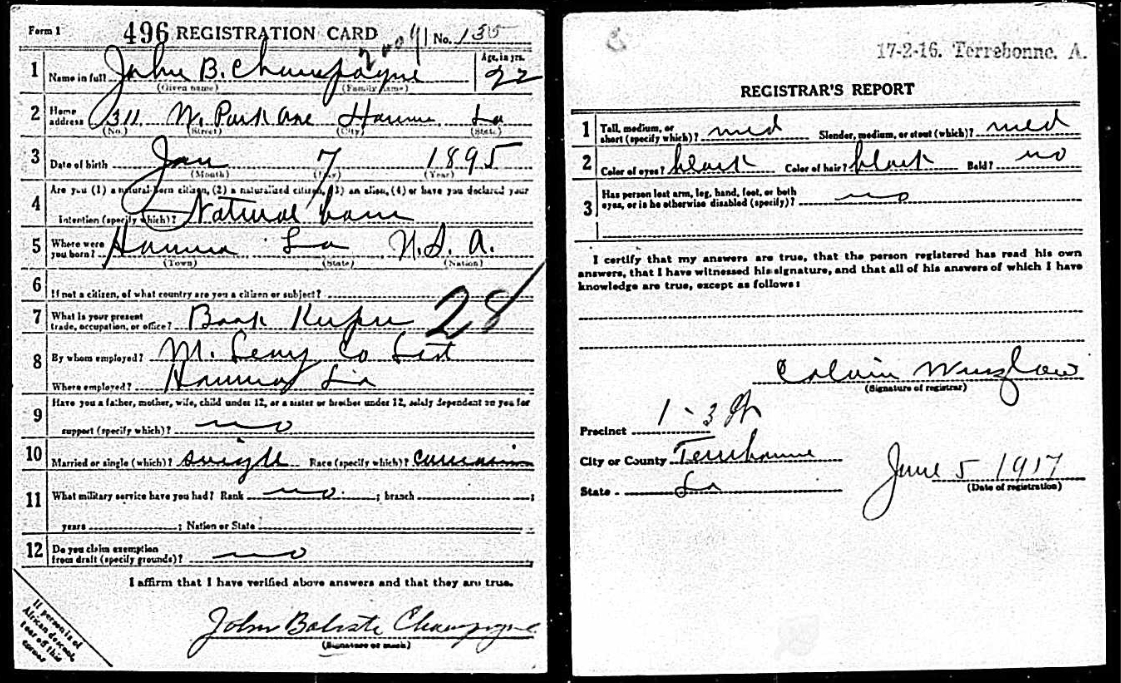 Form 1 496 REGISTRATION CARD No. 135
1 Name in full John B. Champagne Age, in yrs. 22
(Given name) (Family name)
2 Home address 311 W. Park Ave Houma La
(No.) (Street) (City) (State)
3 Date of birth Jan 7 1895
(Month) (Day) (Year)
4 Are you (1) a natural-born citizen, (2) a naturalized citizen, (3) an alien, (4) or have you declared your
intention (specify which)? Natural born
5 Where were you born? Houma La U.S.A.
(Town) (State) (Nation)
6 If not a citizen, of what country are you a citizen or subject?
7 What is your present trade, occupation, or office? Book Keeper 28
8 By whom employed? M. Levy Co
Where employed? Houma La
9 Have you a father, mother, wife, child under 12, or a sister or brother under 12, solely dependent on you for
support (specify which)? no
10 Married or single (which)? single Race (specify which)? Caucasian
11 What military service have you had? Rank no ; branch ;
years ; Nation or State
12 Do you claim exemption from draft (specify grounds)? no
I affirm that I have verified above answers and that they are true.
John Batiste Champagne
(Signature or mark)
If person is of
African descent,
tear off this
corner
17-2-16. Terrebonne. A.
REGISTRAR'S REPORT
1 Tall, medium, or short (specify which)? med Slender, medium, or stout (which)? med
2 Color of eyes? black Color of hair? black Bald? no
3 Has person lost arm, leg, hand, foot, or both
eyes, or is he otherwise disabled (specify)? no
I certify that my answers are true, that the person registered has read his own
answers, that I have witnessed his signature, and that all of his answers of which I have
knowledge are true, except as follows:
Calvin Wurzlow
(Signature of registrar)
Precinct 1-3
City or County Terrebonne
State La
June 5 1917
(Date of registration)